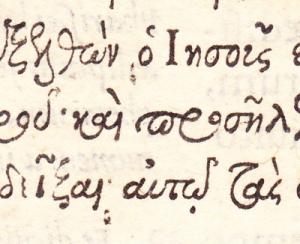 ξελθὼν ὁ Ιησοῦς
ροῦ· καὶ προσῆλ
δεῖξαι αὐτῷ τὰς